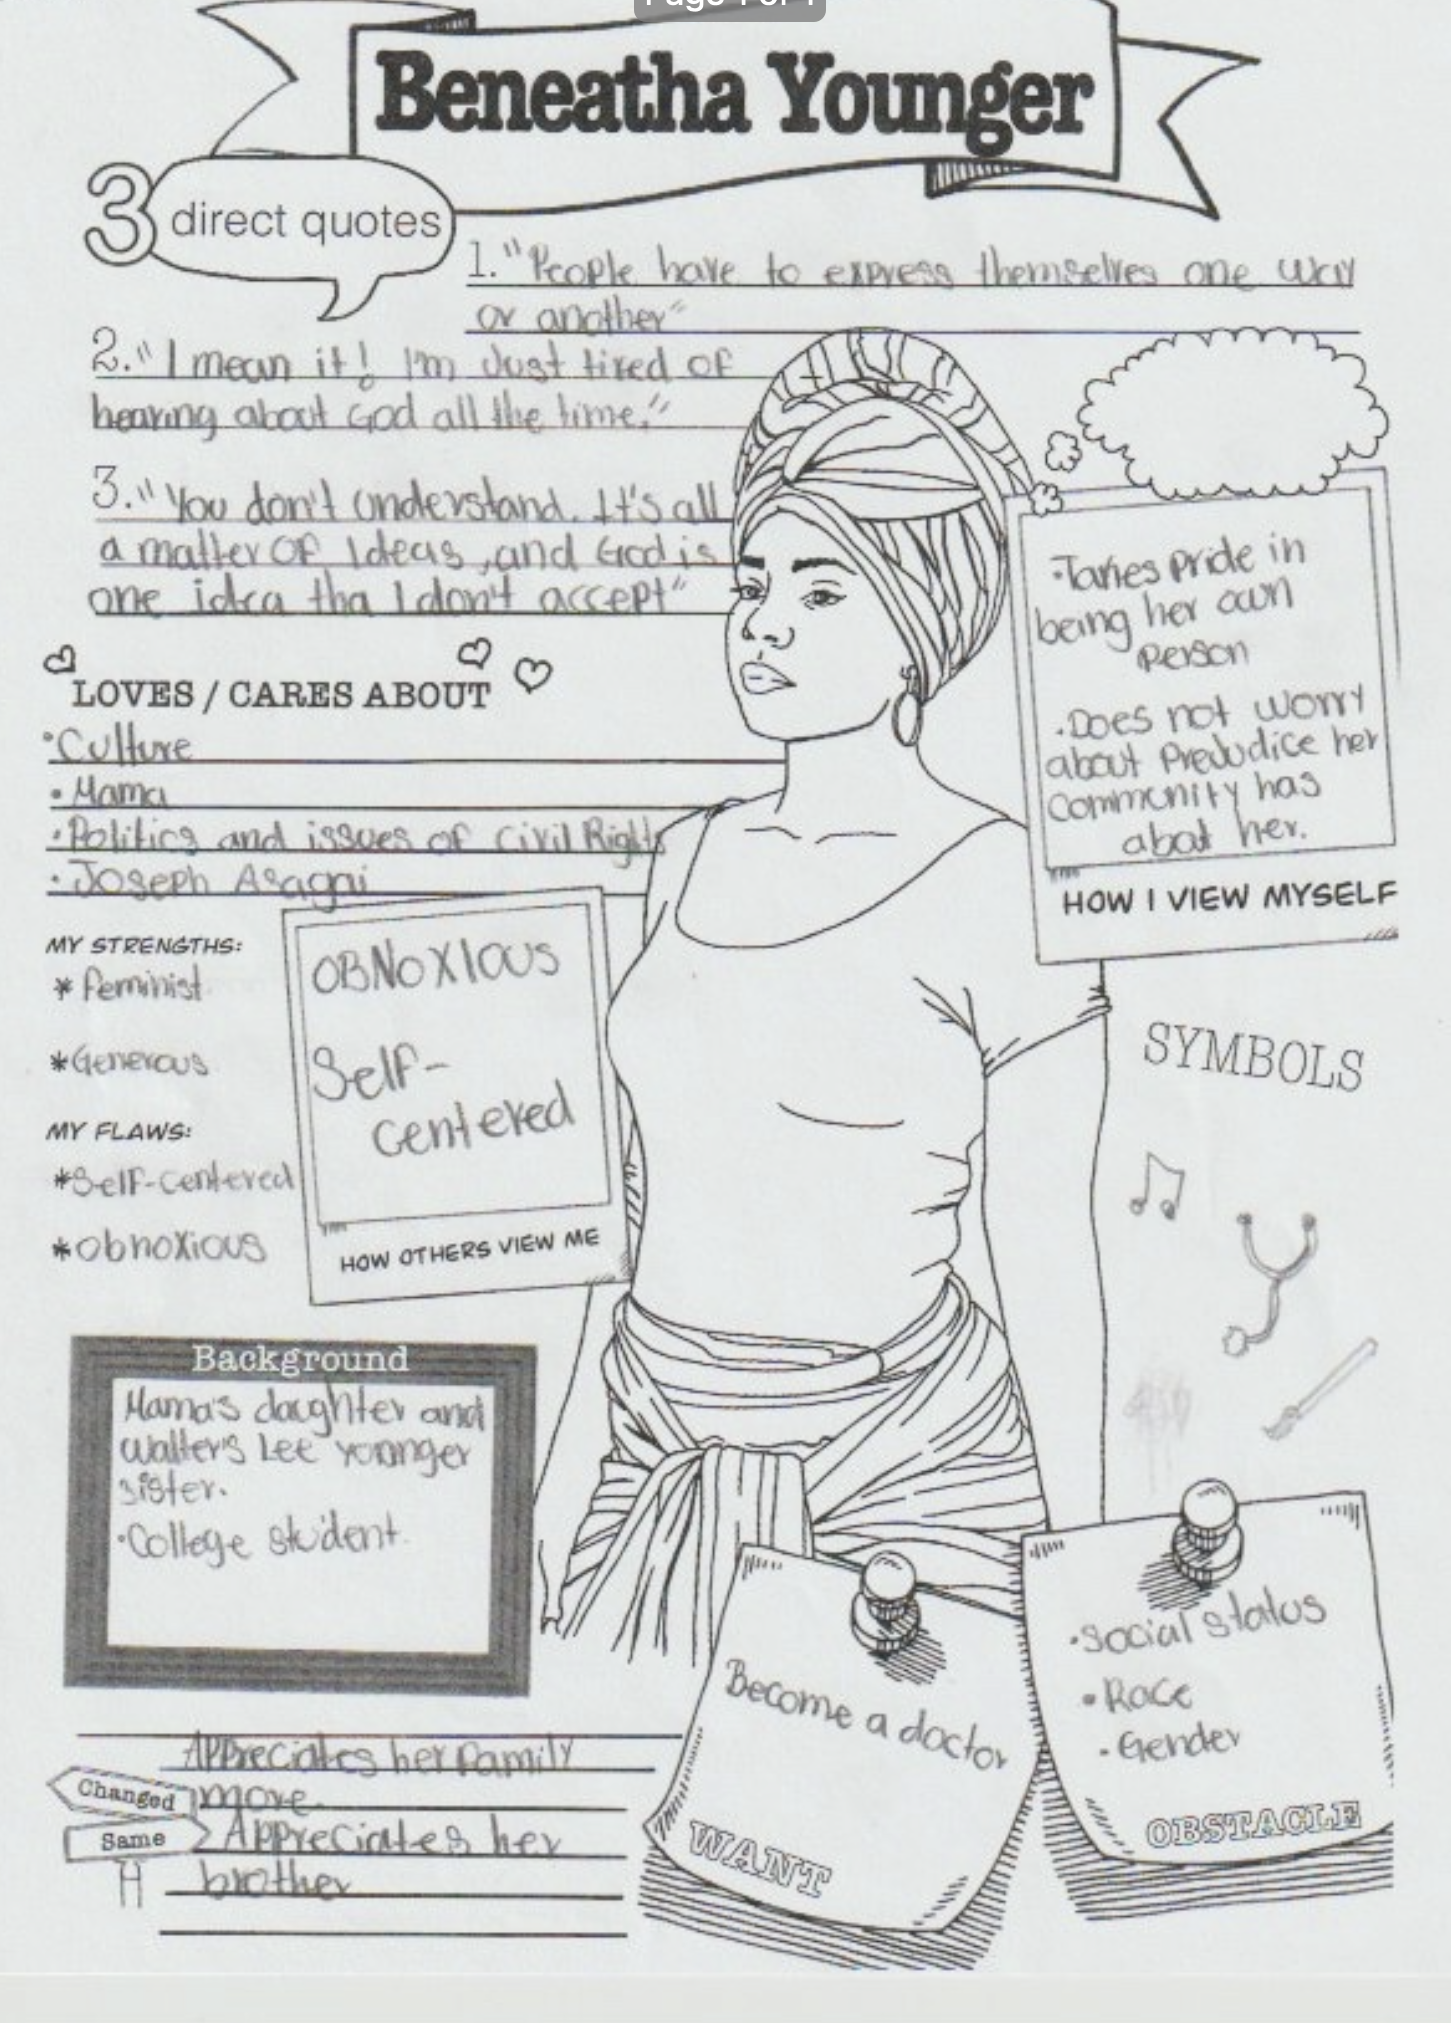 Page 1 of 1
Beneatha Younger
3 direct quotes
1. "People have to express themselves one way
or another"
2. "I mean it! I'm Just tired of
hearing about God all the time."
3. "You don't understand. It's all
a matter of Ideas, and God is
one idea tha I don't accept"
LOVES / CARES ABOUT
• Culture
• Mama
• Politics and issues of Civil Rights
• Joseph Asagai
MY STRENGTHS:
* Feminist
* Generous
MY FLAWS:
* Self-centered
* Obnoxious
OBNOXIOUS
Self-
centered
HOW OTHERS VIEW ME
• Takes pride in
being her own
person
• Does not worry
about Prejudice her
Community has
about her.
HOW I VIEW MYSELF
SYMBOLS
Background
Mama's daughter and
Walter's Lee younger
sister.
• College student.
Appreciates her family
Changed more.
Same Appreciates her
brother
Become a doctor
WANT
• Social status
• Race
• Gender
OBSTACLE